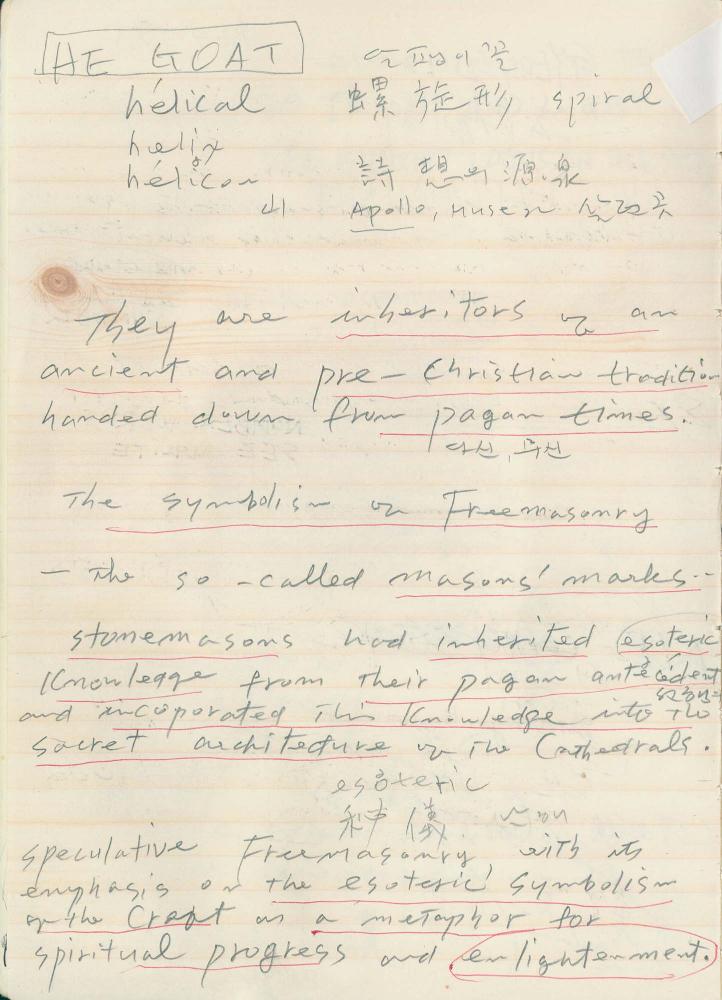 HE GOAT
hélical 螺旋形 spiral
hœlix
hélicon 詩想의 源泉
山 Apollo, Muse가 살던 곳
They are inheritors of an
ancient and pre-Christian tradition
handed down from pagan times.
The symbolism of Freemasonry
- The so-called masons' marks--
stonemasons had inherited esoteric
Knowledge from their pagan antécédent
and incoporated this Knowledge into the
sacret architecture of the Cathedrals.
esóteric
speculative Freemasonry, with its
emphasis on the esoteric symbolism
of the Craft as a metaphor for
spiritual progress and enlightenment.